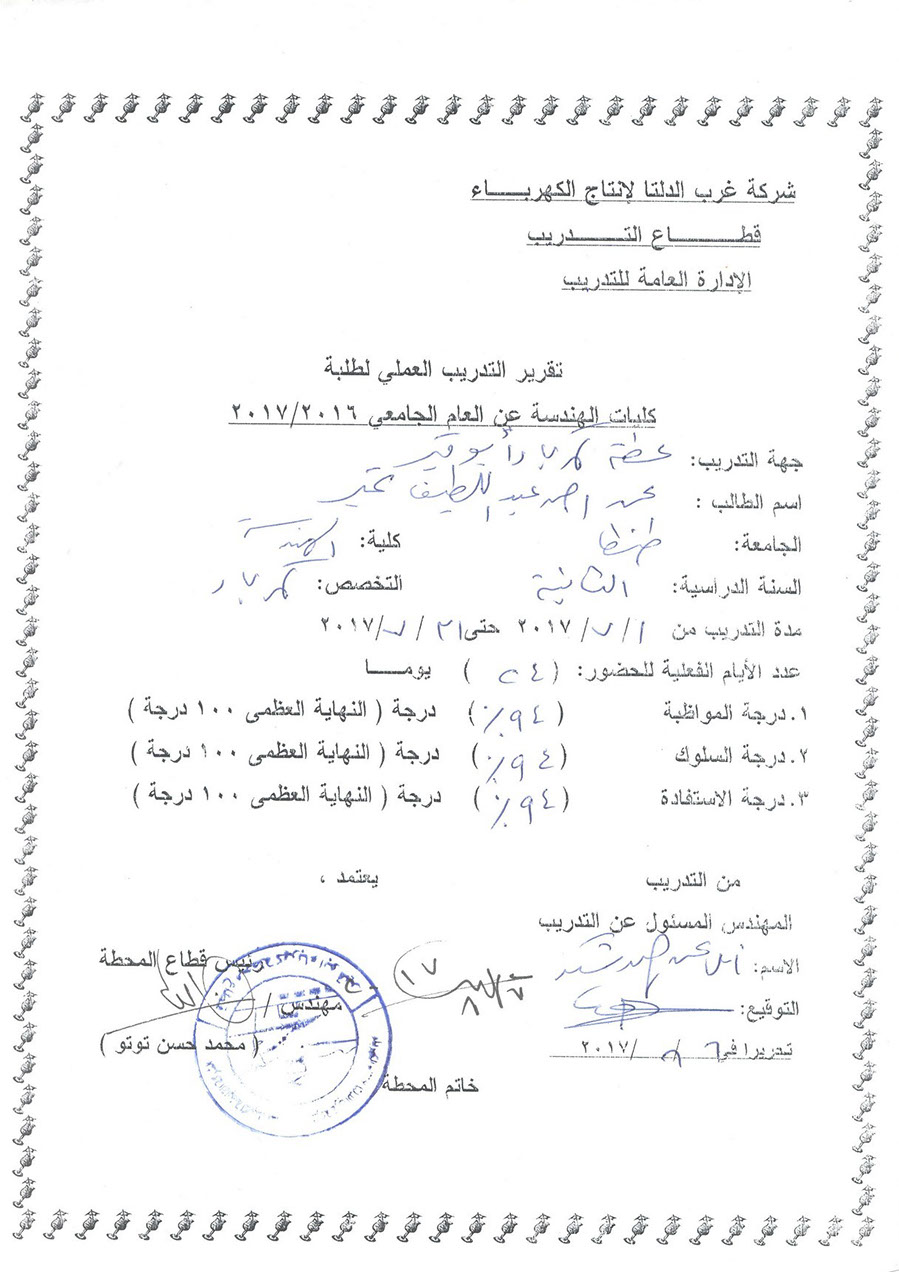 شركة غرب الدلتا لإنتاج الكهرباء
قطاع التدريب
الإدارة العامة للتدريب
تقرير التدريب العملي لطلبة
كليات الهندسة عن العام الجامعي ٢٠١٧/٢٠١٦
جهة التدريب: محطة كهرباء أبو قير
اسم الطالب : احمد عبد اللطيف
الجامعة: طنطا كلية: الهندسة
السنة الدراسية: الثانية التخصص: كهرباء
مدة التدريب من ١ / ٧ / ٢٠١٧ حتى ٣١ / ٧ / ٢٠١٧
عدد الأيام الفعلية للحضور: ( ٢٤ ) يوما
١. درجة المواظبة ( ٩٤٪ ) درجة ( النهاية العظمى ١٠٠ درجة )
٢. درجة السلوك ( ٩٤٪ ) درجة ( النهاية العظمى ١٠٠ درجة )
٣. درجة الاستفادة ( ٩٤٪ ) درجة ( النهاية العظمى ١٠٠ درجة )
من التدريب يعتمد ،
المهندس المسئول عن التدريب
رئيس قطاع المحطة
الاسم:
١٧
مهندس /
التوقيع:
( محمد حسن توتو )
تحريرا في ٦ / ٨ / ٢٠١٧
خاتم المحطة